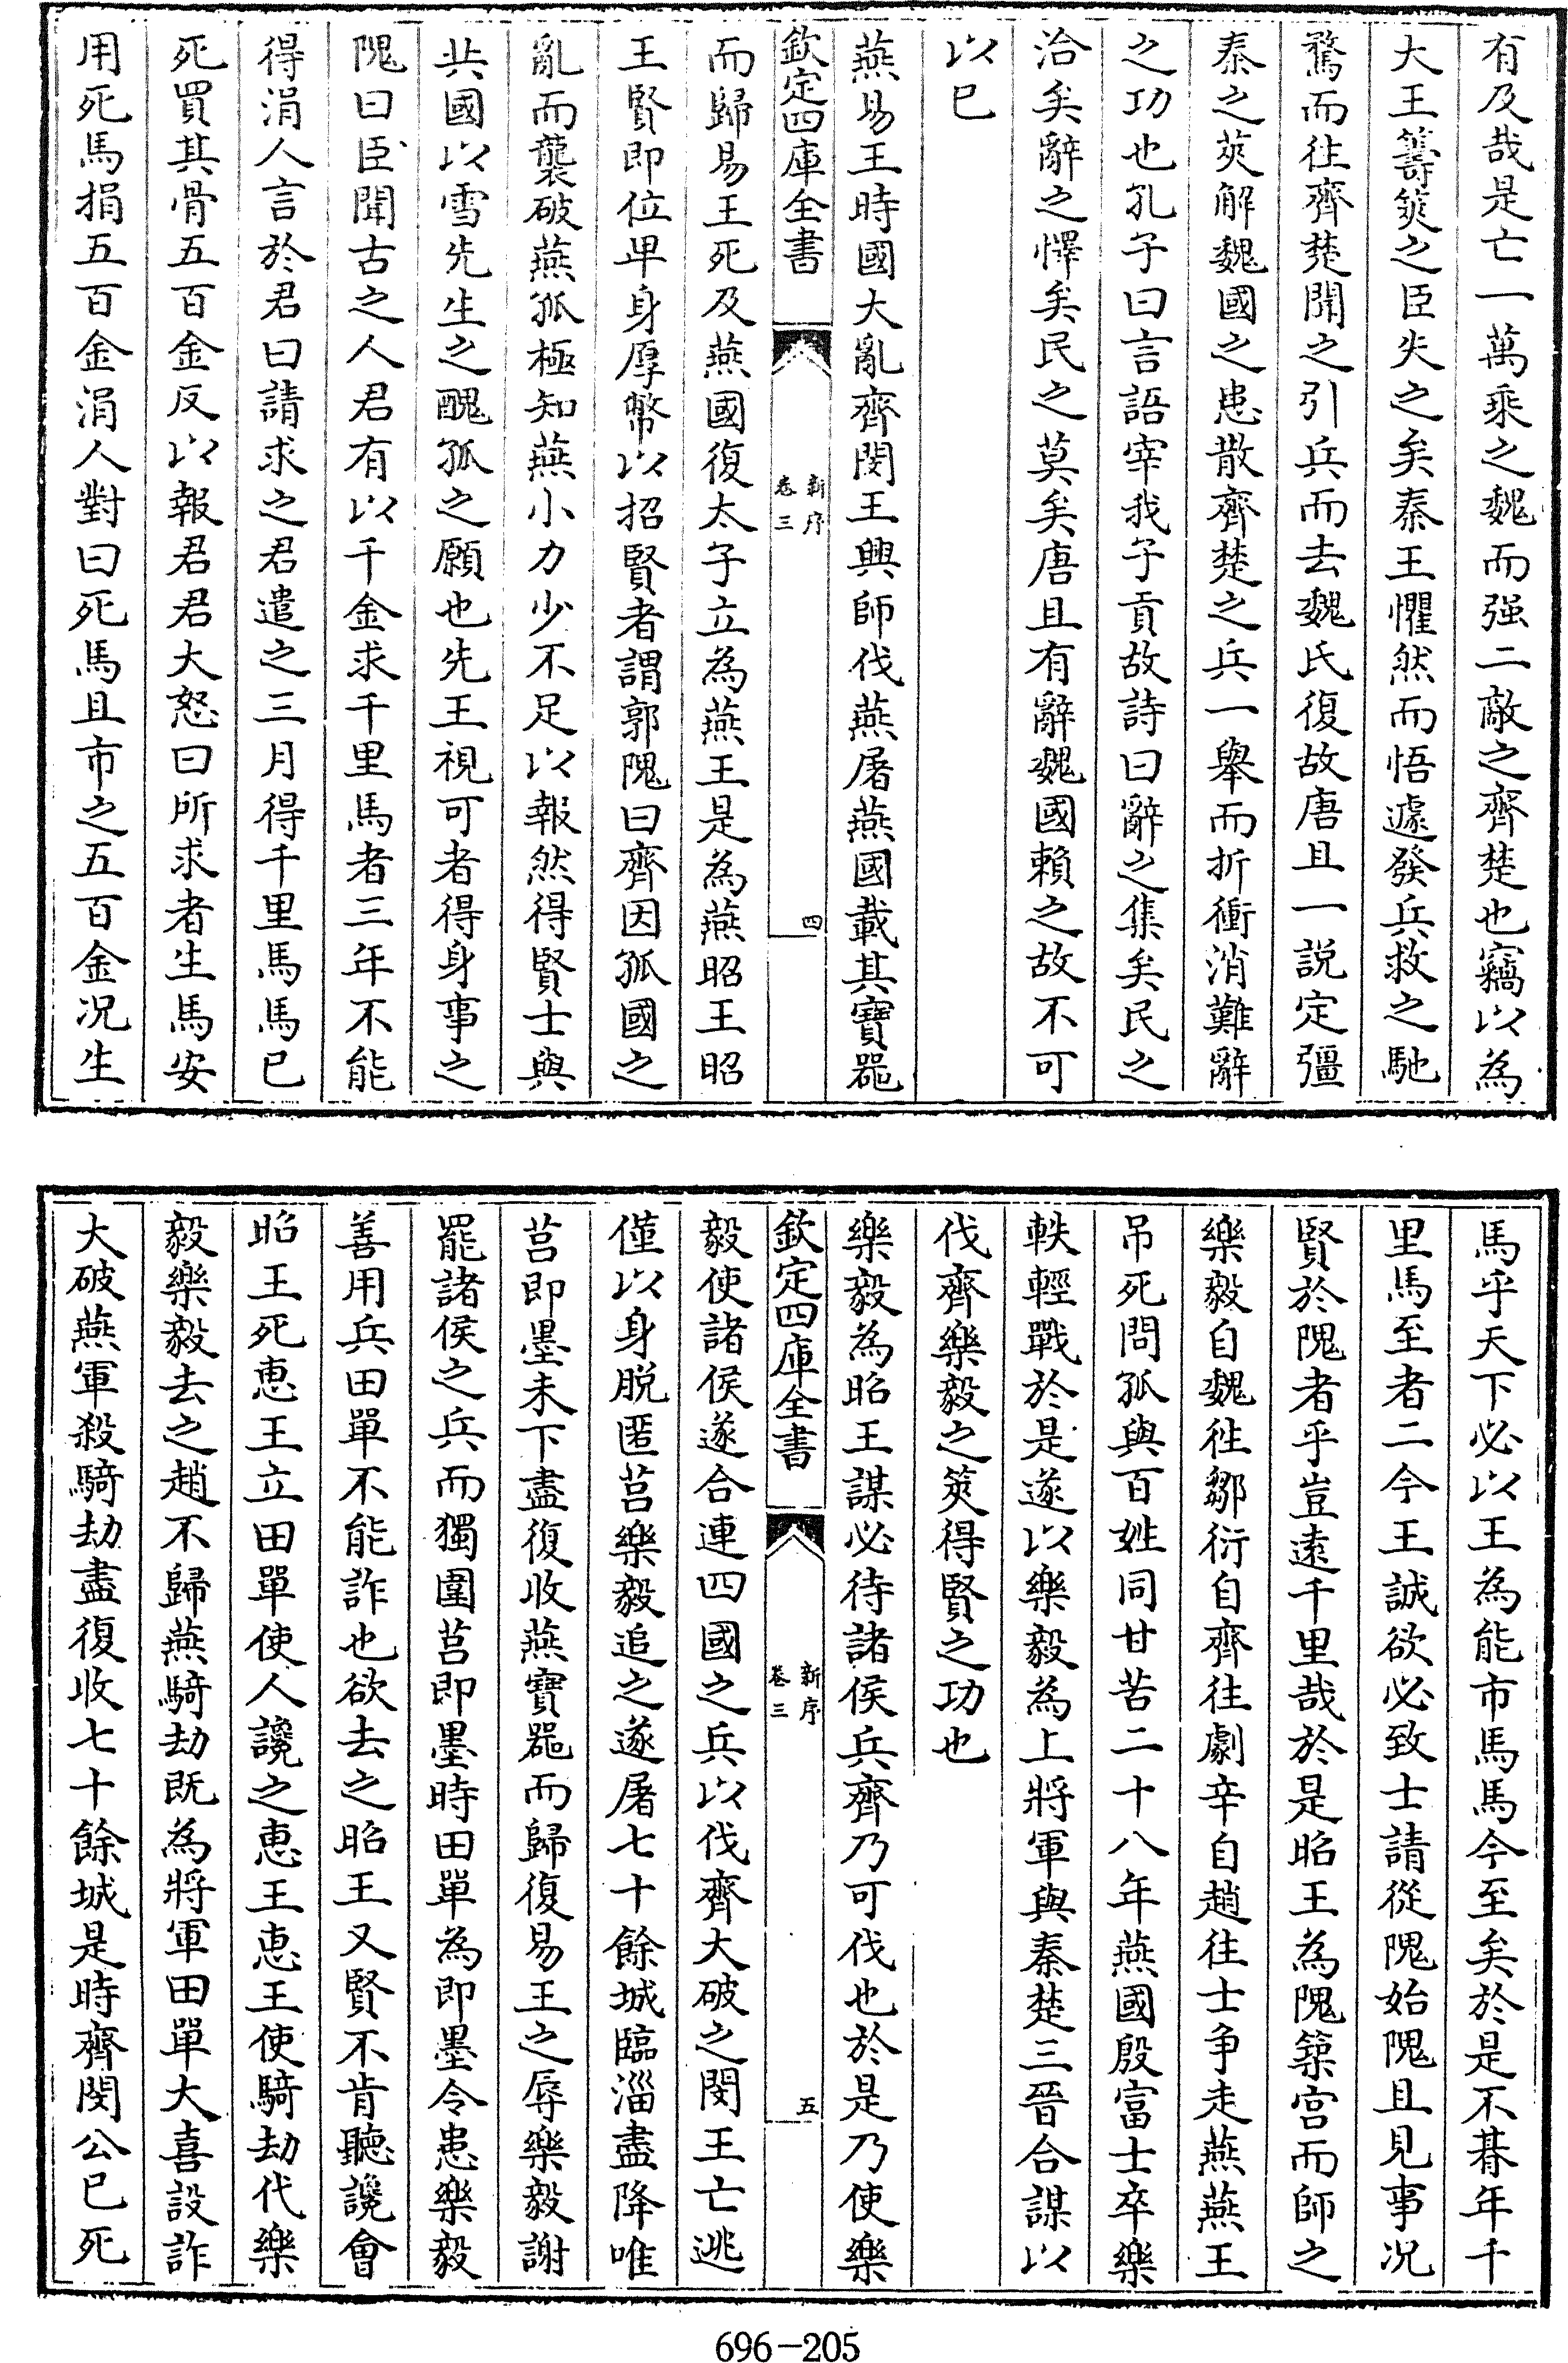 有及哉是亡一萬乘之魏而强二敵之齊楚也竊以為
大王籌筴之臣失之矣秦王懼然而悟遽發兵救之馳
騖而往齊楚聞之引兵而去魏氏復故唐且一說定彊
秦之筴解魏國之患散齊楚之兵一舉而折衝消難辭
之功也孔子曰言語宰我子貢故詩曰辭之集矣民之
洽矣辭之懌矣民之莫矣唐且有辭魏國賴之故不可
以已
燕易王時國大亂齊閔王興師伐燕屠燕國載其寶器
欽定四庫全書
新序
卷三
四
而歸易王死及燕國復太子立為燕王是為燕昭王昭
王賢即位卑身厚幣以招賢者謂郭隗曰齊因孤國之
亂而襲破燕孤極知燕小力少不足以報然得賢士與
共國以雪先生之醜孤之願也先王視可者得身事之
隗曰臣聞古之人君有以千金求千里馬者三年不能
得涓人言於君曰請求之君遣之三月得千里馬馬已
死買其骨五百金反以報君君大怒曰所求者生馬安
用死馬捐五百金涓人對曰死馬且市之五百金况生
馬乎天下必以王為能市馬馬今至矣於是不朞年千
里馬至者二今王誠欲必致士請從隗始隗且見事况
賢於隗者乎豈遠千里哉於是昭王為隗築宫而師之
樂毅自魏徃鄒衍自齊往劇辛自趙往士争走燕燕王
吊死問孤與百姓同甘苦二十八年燕國殷富士卒樂
軼輕戰於是遂以樂毅為上將軍與秦楚三晉合謀以
伐齊樂毅之筴得賢之功也
樂毅為昭王謀必待諸侯兵齊乃可伐也於是乃使樂
欽定四庫全書
新序
卷三
五
毅使諸侯遂合連四國之兵以伐齊大破之閔王亡逃
僅以身脱匿莒樂毅追之遂屠七十餘城臨淄盡降唯
莒即墨未下盡復收燕寶器而歸復易王之辱樂毅謝
罷諸侯之兵而獨圍莒即墨時田單為即墨令患樂毅
善用兵田單不能詐也欲去之昭王又賢不肯聽讒會
昭王死恵王立田單使人讒之恵王恵王使騎劫代樂
毅樂毅去之趙不歸燕騎劫既為將軍田單大喜設詐
大破燕軍殺騎劫盡復收七十餘城是時齊閔公已死
696-205